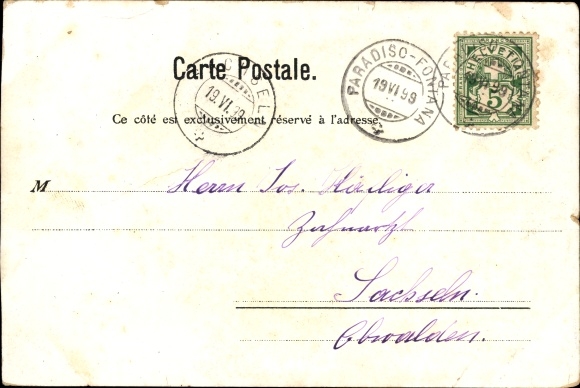 Carte Postale.
PARADISO-FONTANA
19 VI 99
HELVETIA
5
19 VI 99
Ce côté est exclusivement réservé à l'adresse.
M Herrn Jos.
Zahnarzt
Sachseln.
Obwalden.